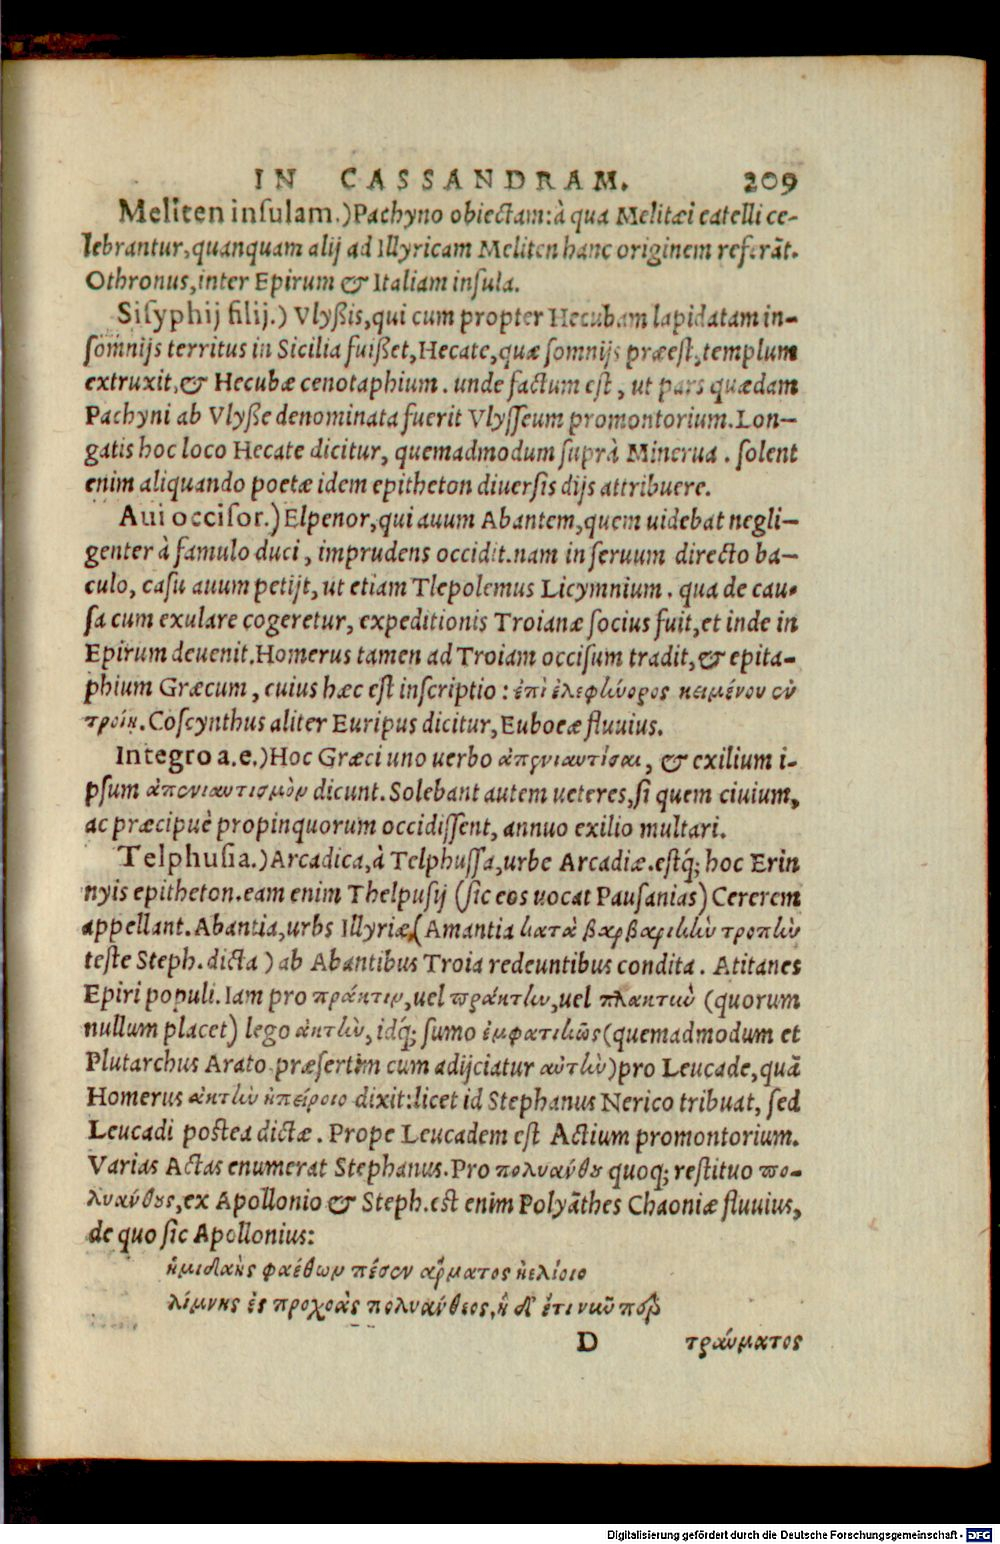 IN CASSANDRAM. 209
Meliten insulam.) Pachyno obiectam: à qua Melitæi catelli ce-
lebrantur, quanquam alij ad Illyricam Meliten hanc originem referāt.
Othronus, inter Epirum & Italiam insula.
Sisyphij filij.) Vlyßis, qui cum propter Hecubam lapidatam in-
somnijs territus in Sicilia fuißet, Hecate, quæ somnijs præest, templum
extruxit, & Hecubæ cenotaphium. unde factum est, ut pars quædam
Pachyni ab Vlyße denominata fuerit Vlysseum promontorium. Lon-
gatis hoc loco Hecate dicitur, quemadmodum suprà Minerua. solent
enim aliquando poetæ idem epitheton diuersis dijs attribuere.
Aui occisor.) Elpenor, qui auum Abantem, quem uidebat negli-
genter à famulo duci, imprudens occidit. nam in seruum directo ba-
culo, casu auum petijt, ut etiam Tlepolemus Licymnium. qua de cau-
sa cum exulare cogeretur, expeditionis Troianæ socius fuit, et inde in
Epirum deuenit. Homerus tamen ad Troiam occisum tradit, & epita-
phium Græcum, cuius hæc est inscriptio: ἐπὶ ἐλεφήνορος κειμένου ἐν
τροίῃ. Coscynthus aliter Euripus dicitur, Euboeæ fluuius.
Integro a.e.) Hoc Græci uno uerbo ἀπενιαυτίσαι, & exilium i-
psum ἀπενιαυτισμὸν dicunt. Solebant autem ueteres, si quem ciuium,
ac præcipuè propinquorum occidissent, annuo exilio multari.
Telphusia.) Arcadica, à Telphussa, urbe Arcadiæ. estq; hoc Erin
nyis epitheton. eam enim Thelpusij (sic eos uocat Pausanias) Cererem
appellant. Abantia, urbs Illyriæ, (Amantia κατὰ βαρβαρικὴν τροπὴν
teste Steph. dicta) ab Abantibus Troia redeuntibus condita. Atitanes
Epiri populi. Iam pro πράκτιν, uel πράκτην, uel πλακτικὼ (quorum
nullum placet) lego ἀκτὴν, idq; sumo ἐμφατικῶς (quemadmodum et
Plutarchus Arato præsertim cum adijciatur αὐτὴν) pro Leucade, quā
Homerus ἀκτὴν ἠπείροιο dixit: licet id Stephanus Nerico tribuat, sed
Leucadi postea dictæ. Prope Leucadem est Actium promontorium.
Varias Actas enumerat Stephanus. Pro πολυάνθου quoq; restituo πο-
λυάνθους, ex Apollonio & Steph. est enim Polyāthes Chaoniæ fluuius,
de quo sic Apollonius:
ἡμιδαὴς φαέθων πέσεν ἅρματος ἠελίοιο
λίμνης ἐς προχοὰς πολυάνθεος, ἡ δ' ἔτι νῦν περ
D τραύματος
Digitalisierung gefördert durch die Deutsche Forschungsgemeinschaft - DFG